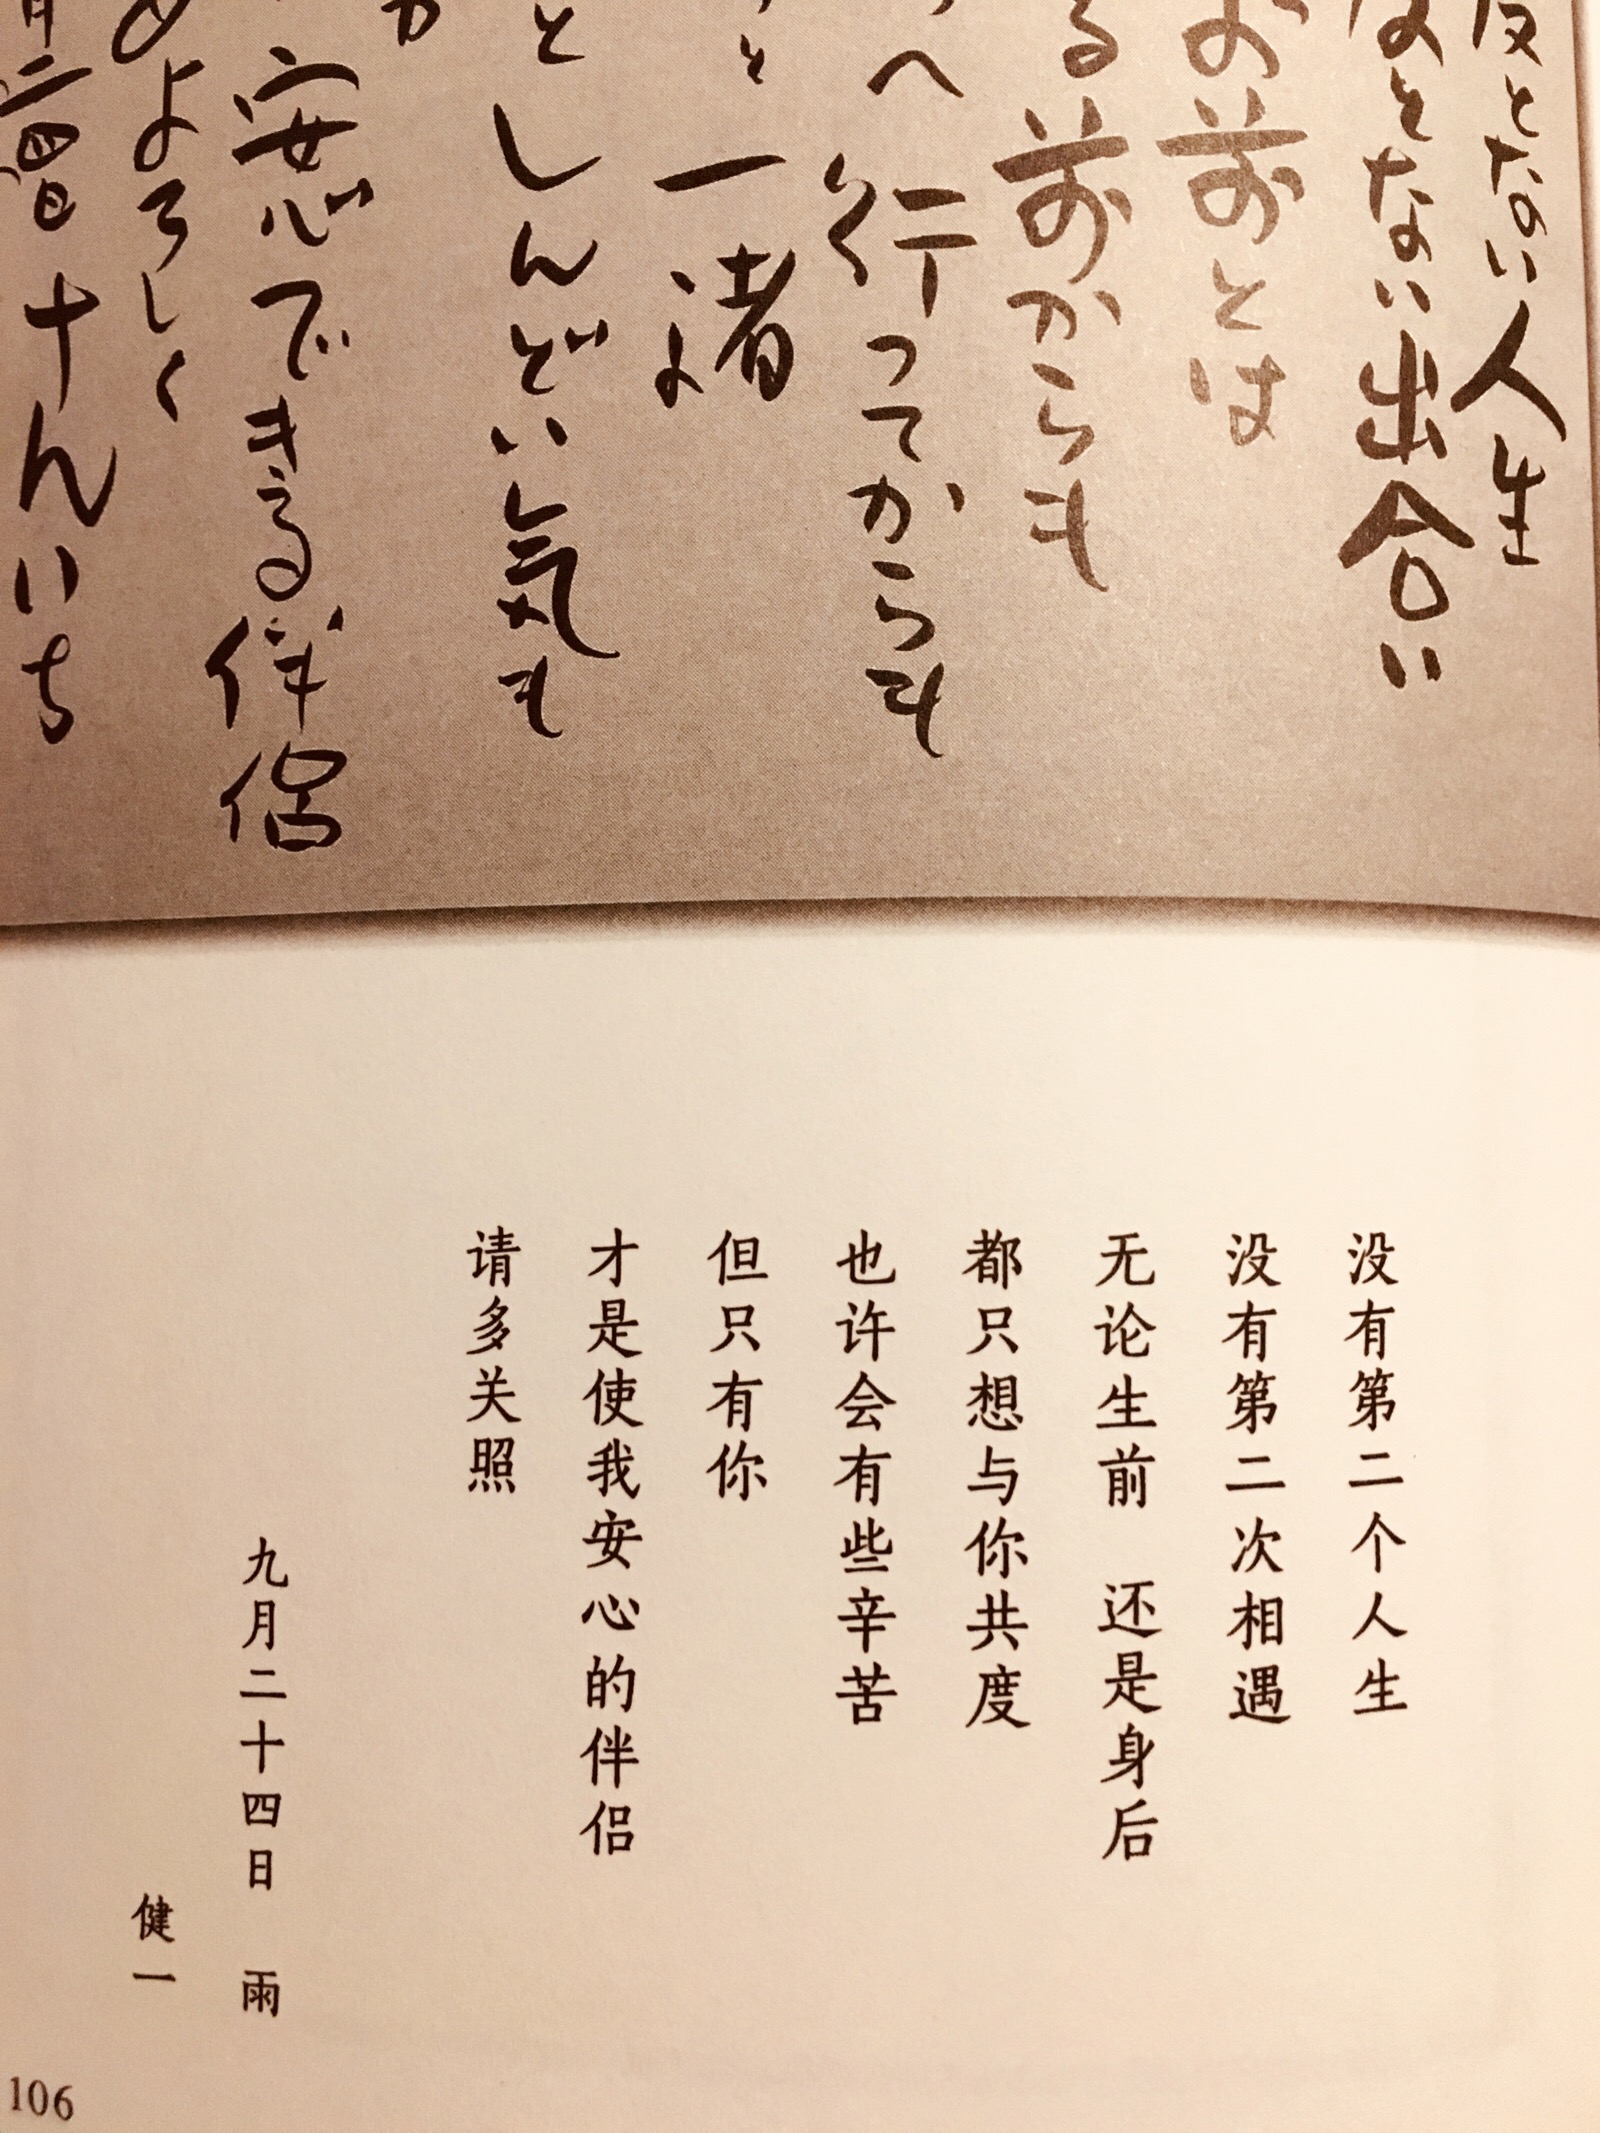 度とない人生
度とない出合い
お前とは
る前からも
へ行ってからも
と一緒よ
としんどい気も
安心できる伴侶
よろしく
月二四日 十んいち
没有第二个人生
没有第二次相遇
无论生前 还是身后
都只想与你共度
也许会有些辛苦
但只有你
才是使我安心的伴侣
请多关照
九月二十四日 雨
健一
106